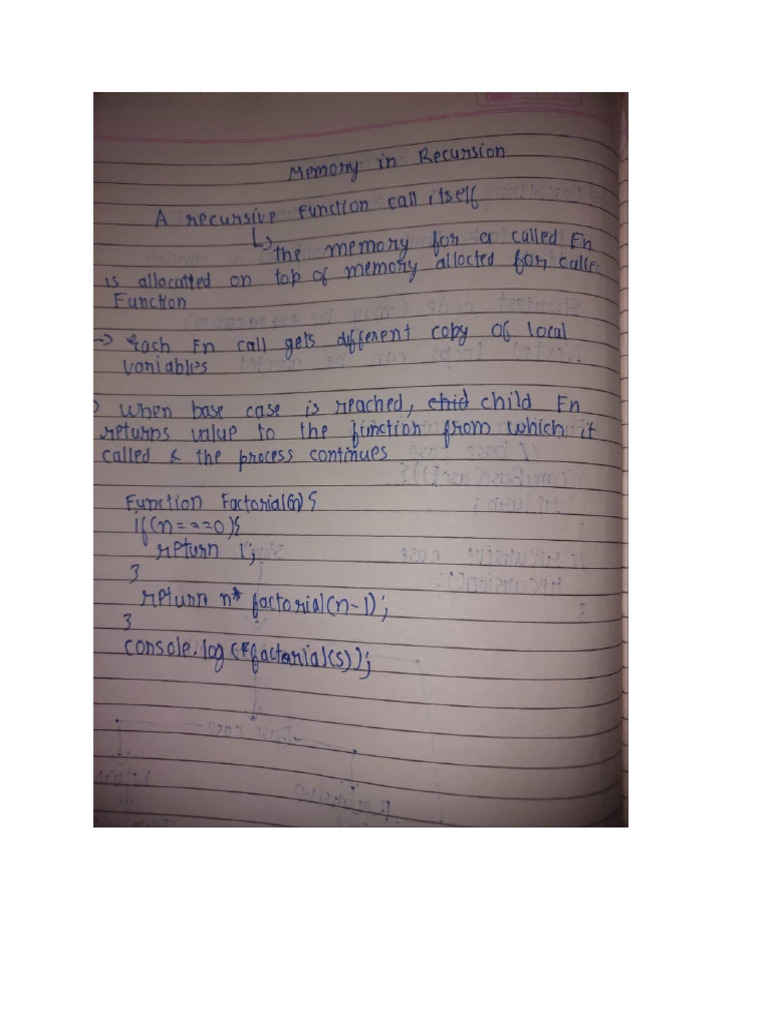 Memory in Recursion
A recursive Function call itself
↳ the memory for a called Fn
is allocatted on top of memory allocted for caller
Function
→ Each Fn call gets different copy of local
variables
when base case is reached, chid child Fn
returns value to the function from which it
called & the process continues
Function Factorial(n){
if(n===0){
return 1;
}
return n* factorial(n-1);
}
console.log(factorial(5));